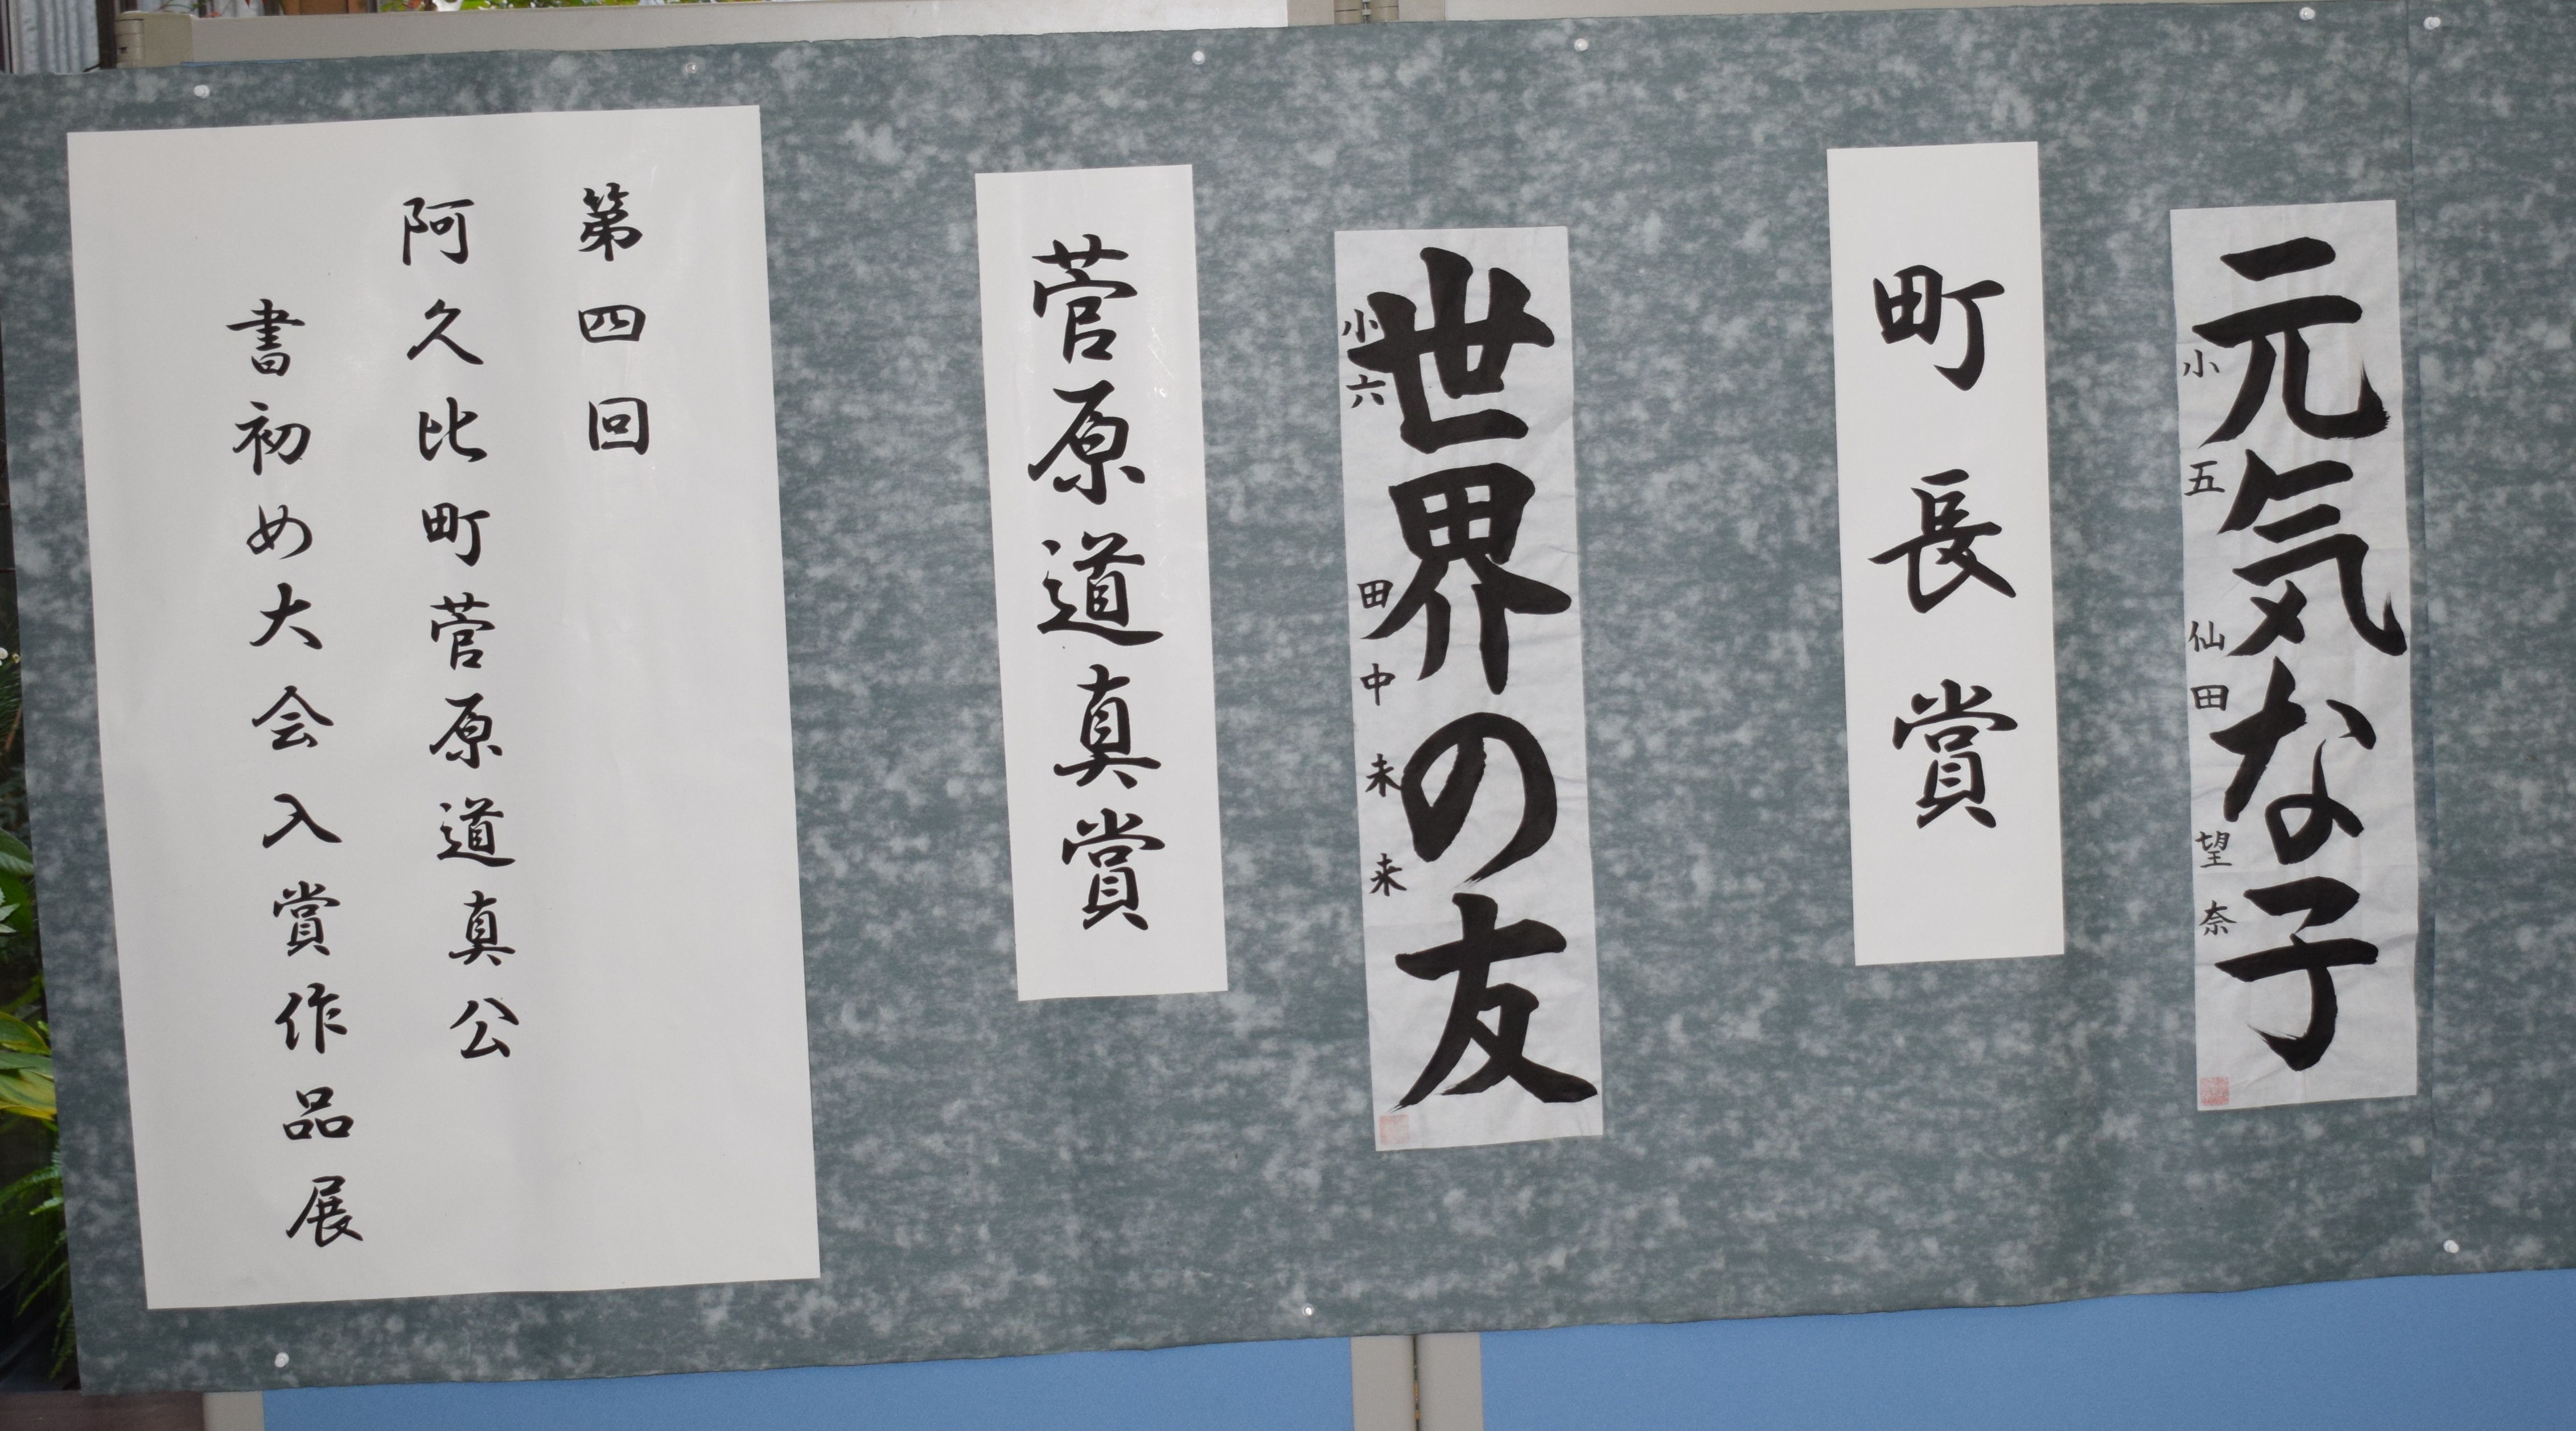 第四回
阿久比町菅原道真公
書初め大会入賞作品展
菅原道真賞
世界の友
小六 田中未来
町長賞
元気な子
小五 仙田望奈